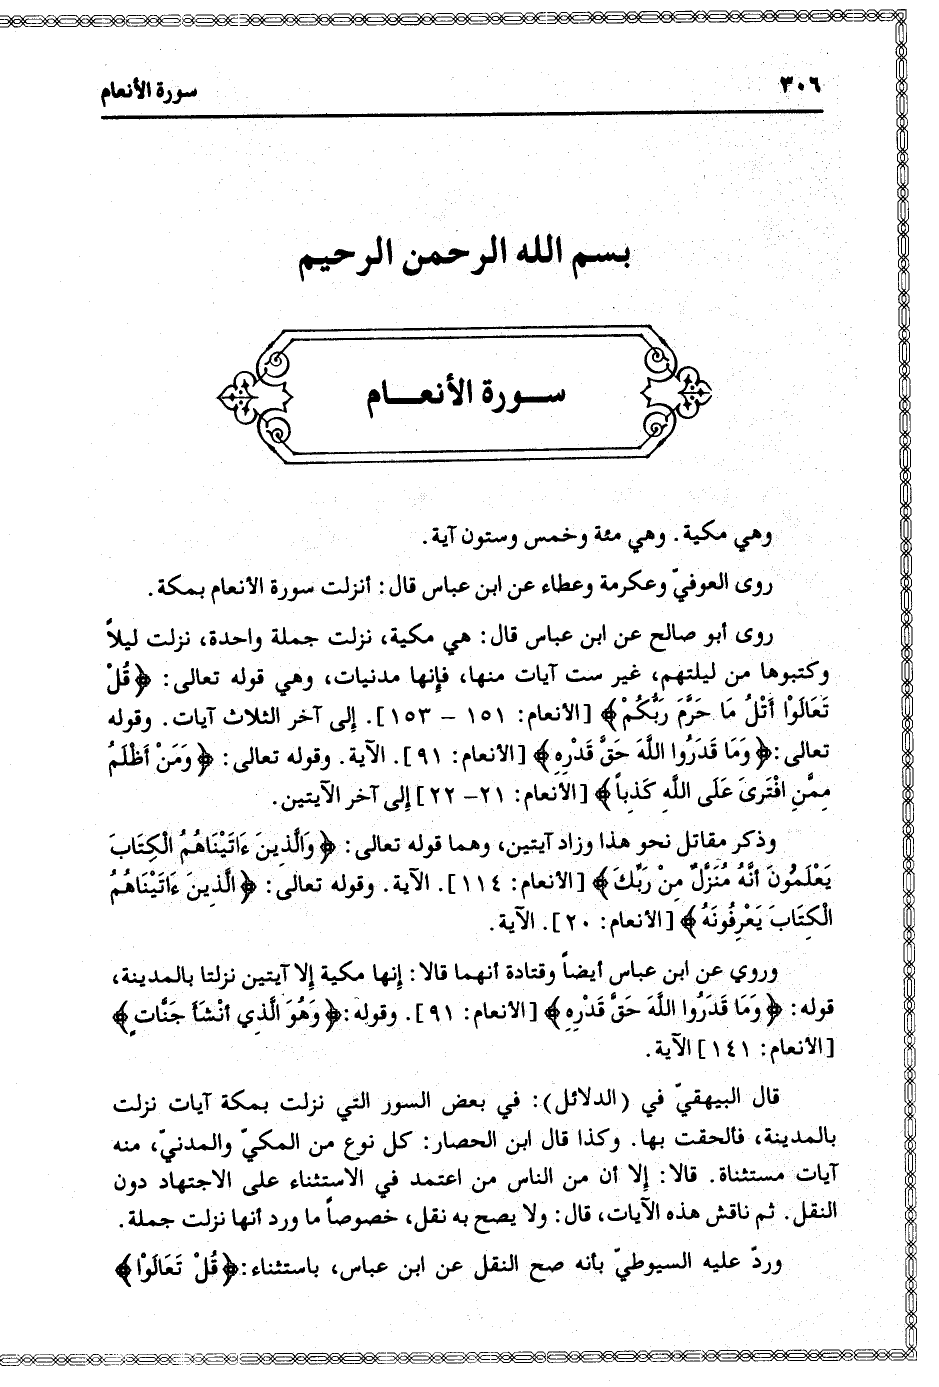 ٣٠٦
سورة الأنعام
بسم الله الرحمن الرحيم
ســورة الأنعــام
وهي مكية. وهي مئة وخمس وستون آية.
روى العوفيّ وعكرمة وعطاء عن ابن عباس قال: أنزلت سورة الأنعام بمكة.
روى أبو صالح عن ابن عباس قال: هي مكية، نزلت جملة واحدة، نزلت ليلاً
وكتبوها من ليلتهم، غير ست آيات منها، فإنها مدنيات، وهي قوله تعالى: ﴿قُلْ
تَعَالَوْا أَتْلُ مَا حَرَّمَ رَبُّكُمْ﴾ [الأنعام: ١٥١ - ١٥٣]. إلى آخر الثلاث آيات. وقوله
تعالى:﴿وَمَا قَدَرُوا اللَّهَ حَقَّ قَدْرِهِ﴾ [الأنعام: ٩١]. الآية. وقوله تعالى: ﴿وَمَنْ أَظْلَمُ
مِمَّنِ افْتَرَىَ عَلَى اللَّهِ كَذِباً﴾ [الأنعام: ٢١- ٢٢] إلى آخر الآيتين.
وذكر مقاتل نحو هذا وزاد آيتين، وهما قوله تعالى: ﴿وَالَّذِينَ ءَاتَيْنَاهُمُ الْكِتَابَ
يَعْلَمُونَ أَنَّهُ مُنَزَّلٌ مِنْ رَبِّكَ﴾ [الأنعام: ١١٤]. الآية. وقوله تعالى: ﴿الَّذِينَ ءَاتَيْنَاهُمُ
الْكِتَابَ يَعْرِفُونَهُ﴾ [الأنعام: ٢٠]. الآية.
وروي عن ابن عباس أيضاً وقتادة أنهما قالا: إنها مكية إلا آيتين نزلتا بالمدينة،
قوله: ﴿وَمَا قَدَرُوا اللَّهَ حَقَّ قَدْرِهِ﴾ [الأنعام: ٩١]. وقوله:﴿وَهُوَ الَّذِي أَنْشَأَ جَنَّاتٍ﴾
[الأنعام: ١٤١] الآية.
قال البيهقيّ في (الدلائل): في بعض السور التي نزلت بمكة آيات نزلت
بالمدينة، فألحقت بها. وكذا قال ابن الحصار: كل نوع من المكيّ والمدنيّ، منه
آيات مستثناة. قالا: إلا أن من الناس من اعتمد في الاستثناء على الاجتهاد دون
النقل. ثم ناقش هذه الآيات، قال: ولا يصح به نقل، خصوصاً ما ورد أنها نزلت جملة.
وردّ عليه السيوطيّ بأنه صح النقل عن ابن عباس، باستثناء:﴿قُلْ تَعَالَوْا﴾